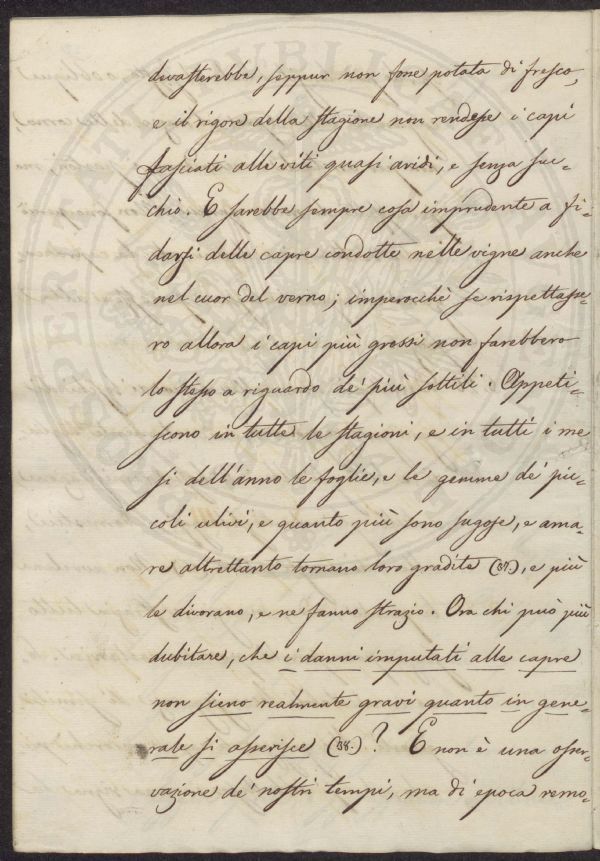 devasterebbe, seppur non fosse potata di fresco,
e il rigore della stagione non rendesse i capi
lasciati alle viti quasi aridi, e senza suc-
chio. E sarebbe sempre cosa imprudente a fi-
darsi delle capre condotte nelle vigne anche
nel cuor del verno; imperocchè se rispettasse-
ro allora i capi più grossi non farebbero
lo stesso a riguardo de' più sottili. Appeti-
scono in tutte le stagioni, e in tutti i me
si dell'anno le foglie, e le gemme de' pic-
coli ulivi, e quanto più sono sugose, e ama-
re altrettanto tornano loro gradite (37.), e più
le divorano, e ne fanno strazio. Ora chi può più
dubitare, che i danni imputati alle capre
non sieno realmente gravi quanto in gene-
rale si asserisce (38.)? E non è una osser-
vazione de' nostri tempi, ma di epoca remo-